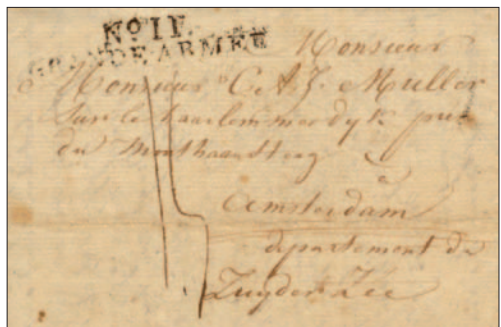 No. 11.
GRANDE ARMÉE
Monsieur
Monsieur C. & J. Muller
Sur le haarlemmerdyk près
du
à
Amsterdam
departement du
Zuyder Zée